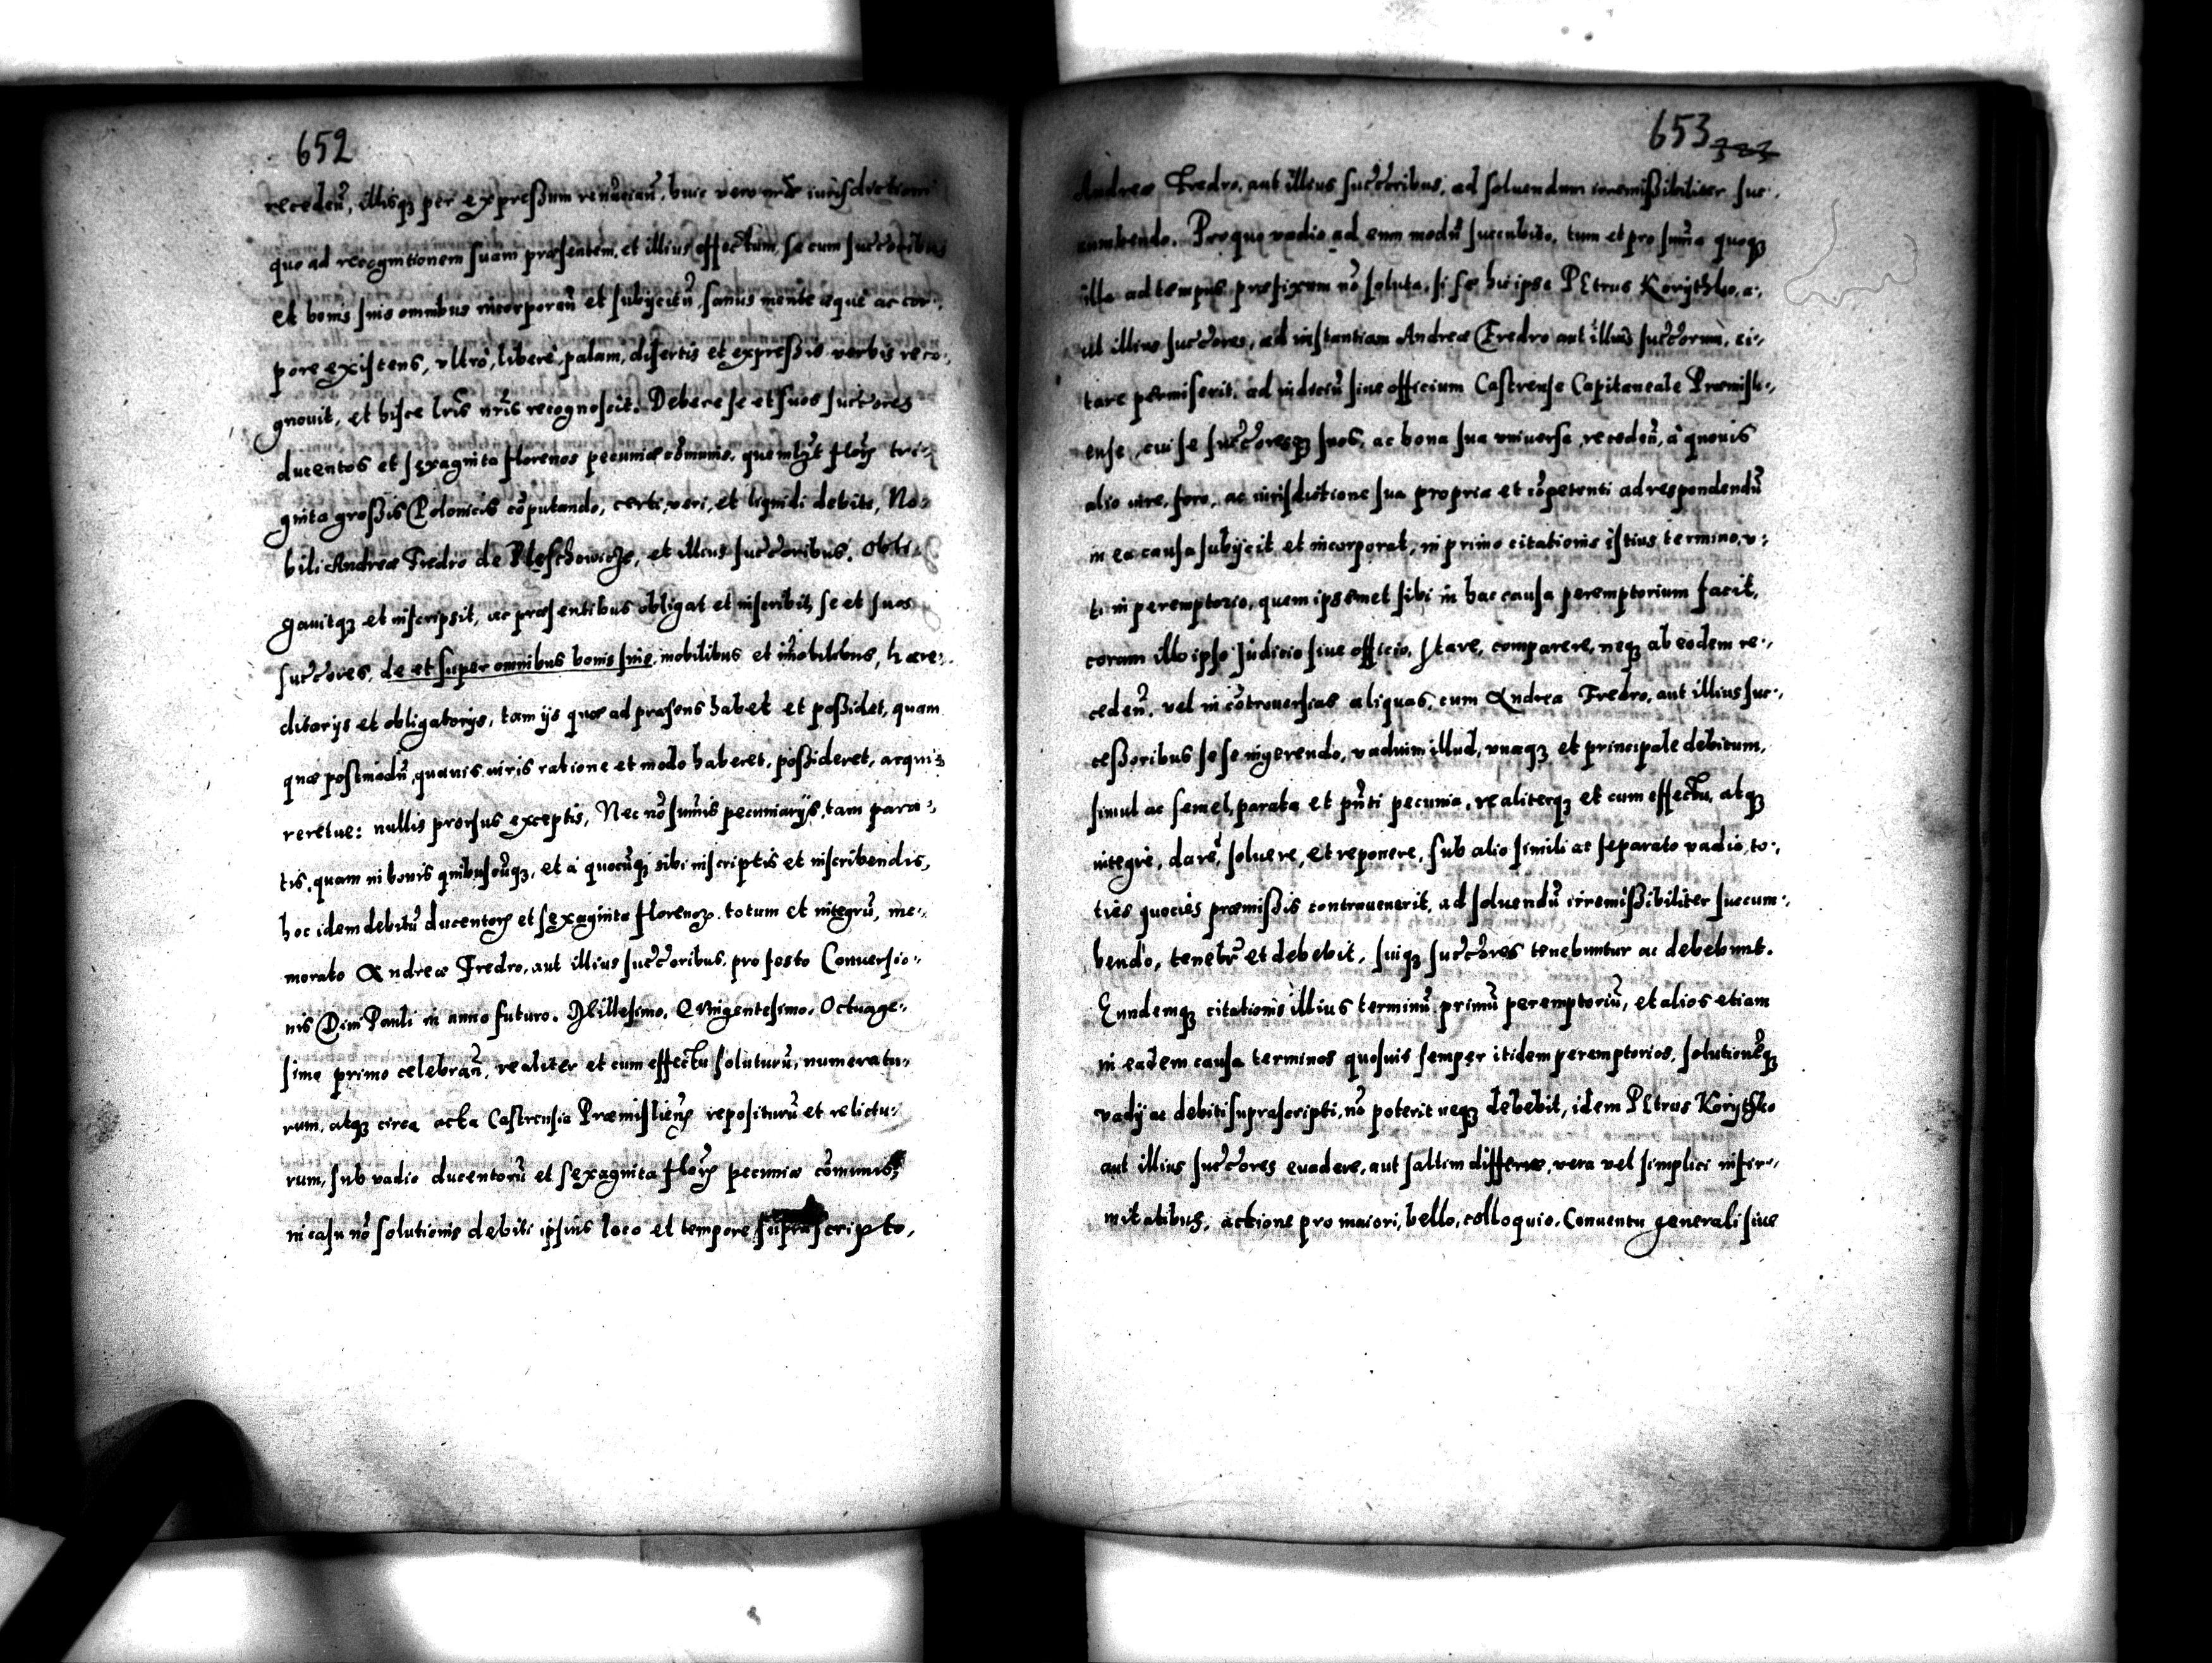 652
recedeñ, illisqȝ per expreßum renũciañ, huic vero nr̃æ iurisdictioni
quo ad recognitionem suam præsentem, et illius effectum, se cum succõribus
et bonis suis omnibus incorporeñ et subijcieñ, sanus mente æque ac cor-,
pore existens, vltrò, liberè, palam, disertis et expreßis verbis reco-,
gnouit, et hisce lr̃is nr̃is recognoscit. Debere se et suos succõres
ducentos et sexaginta florenos pecuniæ cõmunis, quemlȝt flor̃ tri-,
ginta großis Polonicis cõputando, certi, veri, et liquidi debiti, No-
bili Andreæ Fredro de Pleschowicze, et illius succõribus. Obli-
gauitqȝ et inscripsit, ac præsentibus obligat et inscribit, se et suos
succõres, de et super omnibus bonis suis, mobilibus et im̃obilibus, hære-,
ditarijs et obligatorijs, tam ijs quæ ad præsens habet et poßidet, quam
quæ postmodũ, quauis iuris ratione et modo haberet, poßideret, acqui-
reretue: nullis prorsus exceptis, Nec nõ sum̃is pecuniarijs, tam para-,
tis, quam in bonis quibusuũqȝ, et à quocũqȝ sibi inscriptis et inscribendis,
hoc idem debitũ ducentorȝ et sexaginta florenorȝ totum et integrũ, me-,
morato Andreæ Fredro, aut illius succõribus, pro festo Conuersio-,
nis Diui Pauli in anno futuro. Millesimo, Quingentesimo, Octuage-,
simo primo celebrañ, realiter et cum effectu soluturũ, numeratu-,
rum, atqȝ circa acta Castrensia Præmisliens̃ repositurũ et relictu-,
rum, sub vadio ducentorũ et sexaginta flor̃ pecuniæ cõmunis,
in casu nõ solutionis debiti ipsius loco et tempore suprascripto,
653
Andreæ Fredro, aut illius succõribus, ad soluendum irremißibiliter suc-,
cumbendo. Pro quo vadio ad eum modũ succubito, tum et pro sum̃a quoqȝ
illa ad tempus præfixum nõ soluta, si se hic ipse Petrus Korythko, a-,
ut illius succõres, ad instantiam Andreæ Fredro aut illius succõrum, ci-,
tare permiserit, ad iudiciũ siue officium Castrense Capitaneale Præmisli-,
ense, cui se succõresqȝ suos, ac bona sua vniuersa, recedeñ, à quouis
alio iure, foro, ac iurisdictione sua propria et cõpetenti ad respondendũ
in ea causa subijcit et incorporat, in primo citationis istius termino, v-,
ti in peremptorio, quem ipsemet sibi in hac causa peremptorium facit,
coram illo ipso Iudicio siue officio, stare, comparere, neqȝ ab eodem re-,
cedeñ, vel in cõtrouersias aliquas, cum Andrea Fredro, aut illius suc-,
ceßoribus sese ingerendo, vadium illud, vnaqȝ et principale debitum,
simul ac semel, parata et pñti pecunia, realiterqȝ et cum effectu, atqȝ
integrè, dare, soluere, et reponere, sub alio simili ac separato vadio, to-,
ties quoties præmißis controuenerit, ad soluendũ irremißibiliter succum-,
bendo, tenebr̃ et debebit, suiqȝ succõres tenebuntur ac debebunt.
Eundemqȝ citationis illius terminũ primũ peremptoriũ, et alios etiam
in eadem causa terminos quosuis semper itidem peremptorios, solutionẽqȝ
vadij ac debiti suprascripti, nõ poterit neqȝ debebit, idem Petrus Korythko
aut illius succõres euadere, aut saltim differre, vera vel simplici infir-,
mitatibus, actione pro maiori, bello, colloquio, Conuentu generali siue